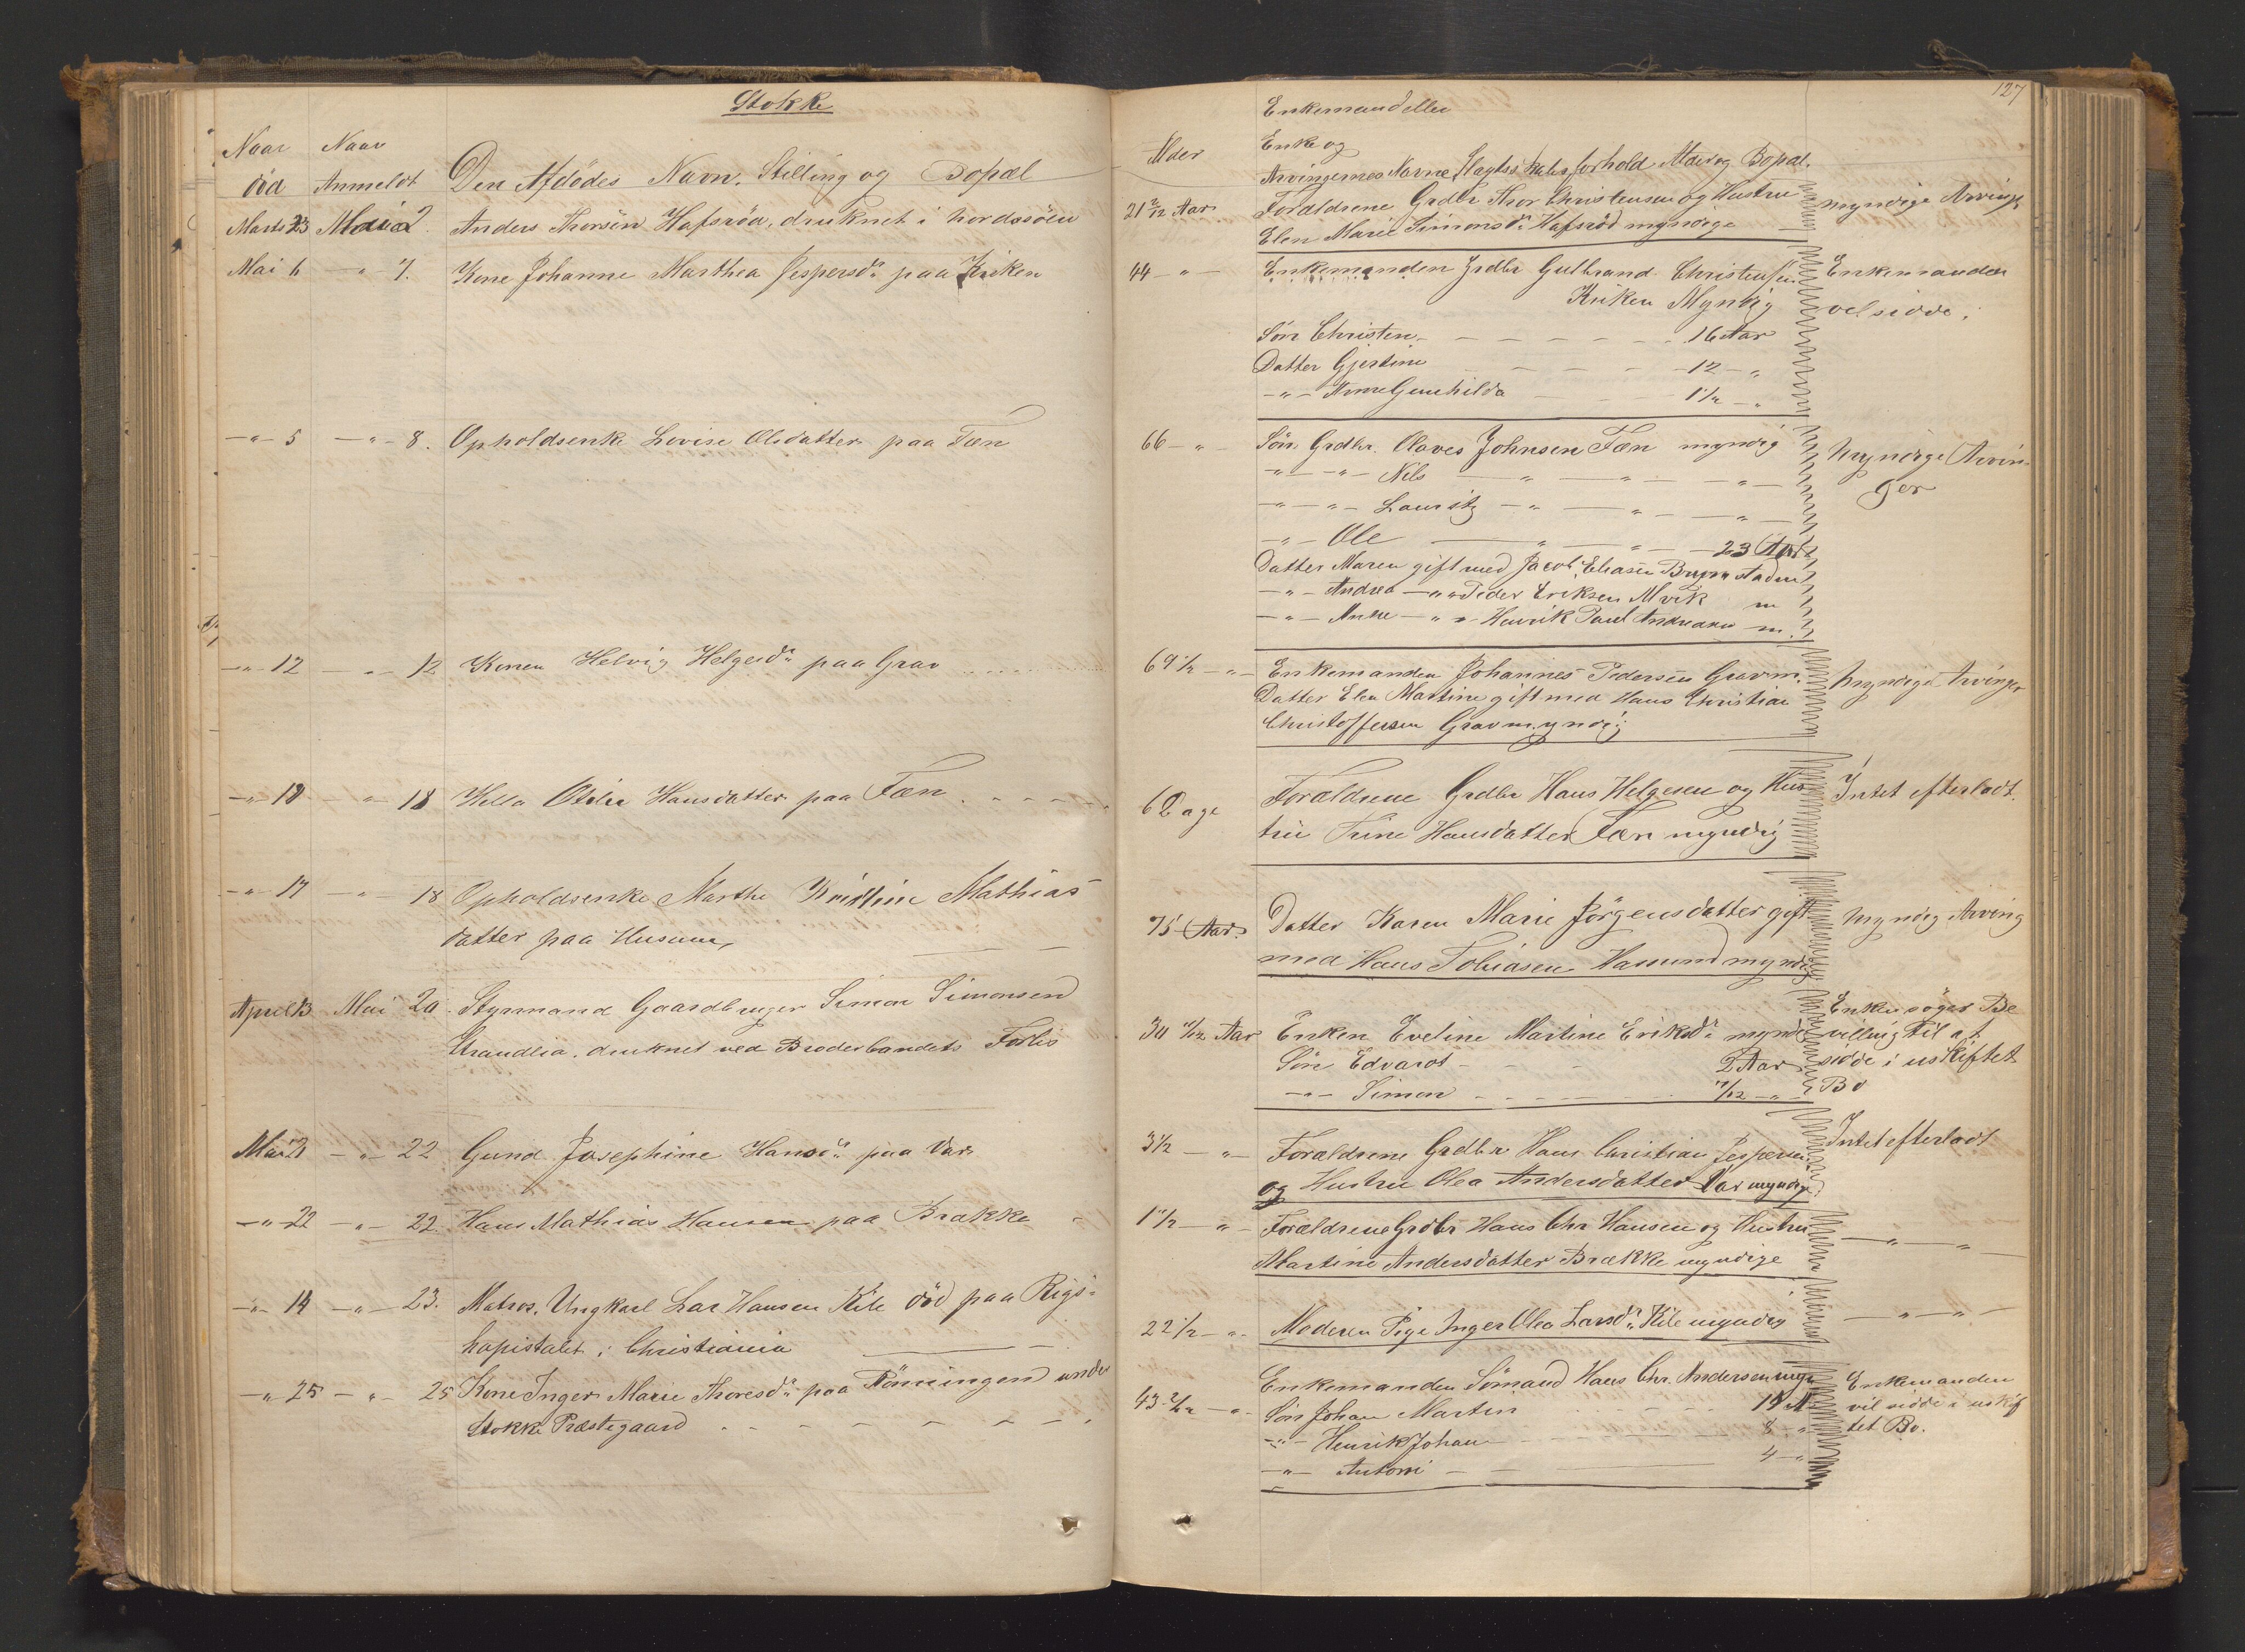 Stokke
Naar Naar
död Anmeldt Den Afdödes Navn, Stilling og Bopæl
Marts 23 Mai 2. Anders Thorsen Hafsröd, druknet i Nordsöen
Mai 6 — " 7. Kone Johanne Marthea Jespersdr paa Kriken
— " 5 — " 8. Opholdsenke Lovise Olsdatter paa Fæn
— " 12 — " 12 Konen Helvig Helgesdr paa Grav
— " 18 — " 18 Otilie Hansdatter paa Fæn
— " 17 — " 18 Opholdsenke Marthe Kristine Mathias
datter paa Husum,
April 13 Mai 20. Styrmand Gaardbruger Simon Simonsen
druknet ved Broderbandets Forlis
Mai 21 — " 22 Gund Josephine Hansdr paa Var
— " 22 — " 22. Hans Mathias Hansen paa Brække
— " 14 — " 23. Matros. Ungkarl Lar Hansen Kile död paa Rigs-
hopistalet i Christiania
— " 25 — " 25 Kone Inger Marie Thoresdr paa Rönningen under
Stokke Præstegaard
127
Enkemand eller
Alder Enke og
Arvingernes Navne, Slagtskabsforhold Alder og Bopæl.
21 2/12 Aar. Forældrene Grdbr Thor Christensen og Hustru myndige Arvinge
Elen Marie Simonsdr Hafsröd myndige
44 — " — Enkemanden Grdbr Gulbrand Christensen Enkemanden
Kriken Myndig vel sidde i
Sön Christen — — 16 Aar
Datter Gjertine — — 12 — "
— " — Anne Gunhilda — — 1 1/2 — "
66 — " — Sön Grdbr. Olaves Johnsen Fæn myndig Myndige Arvin-
— " — " — Nils — " — " — " — ger
— " — " — Lauritz — " — " — " —
— " — Ole — " — " — 23 Aar
Datter Maren gift med Jacob Eliasen
— " — Andrea — " " Peder Eriksen Mvik m
— " — Anne — " " — Henrik Paul m.
69 1/2 — " — Enkemanden Johannes Pedersen Grav m. Myndige Arvinger
Datter Elen Martine gift med Hans Christian
Christoffersen Grav myndig
6 Dage Forældrene Grdbr Hans Helgesen og Hus Intet efterladt.
tru Trine Hansdatter Fæn myndig
75 Aar. Datter Karen Marie Jörgensdatter gift Myndig Arving
med Hans Tobiasen myndig
30 Aar Enken Eveline Martine Eriksdr mynd Enken söger Be
Sön Edvardt — 2 Aar villing til at
— " — Simon — 7/12 — " sidde i uskiftet
Bo
3 1/2 — " — Forældrene Grdbr Hans Christian Jespersen Intet efterladt
og Hustru Olea Andersdatter Var myndige
1 1/2 — " — Forældrene Grdbr Hans Chr Hansen og Hustru — " — " —
Martine Andersdatter Brække myndige
22 1/2 — " — Moderen Pige Inger Olea Larsdr Kile myndig — " — " —
43 — " — Enkemanden Sömand Hans Chr. Andersen myn Enkemanden
Sön Johan Martin — vil sidde i uskif
— " — Henrik Johan — 8 — " tet Bo.
— " — Antoni — 4 — "